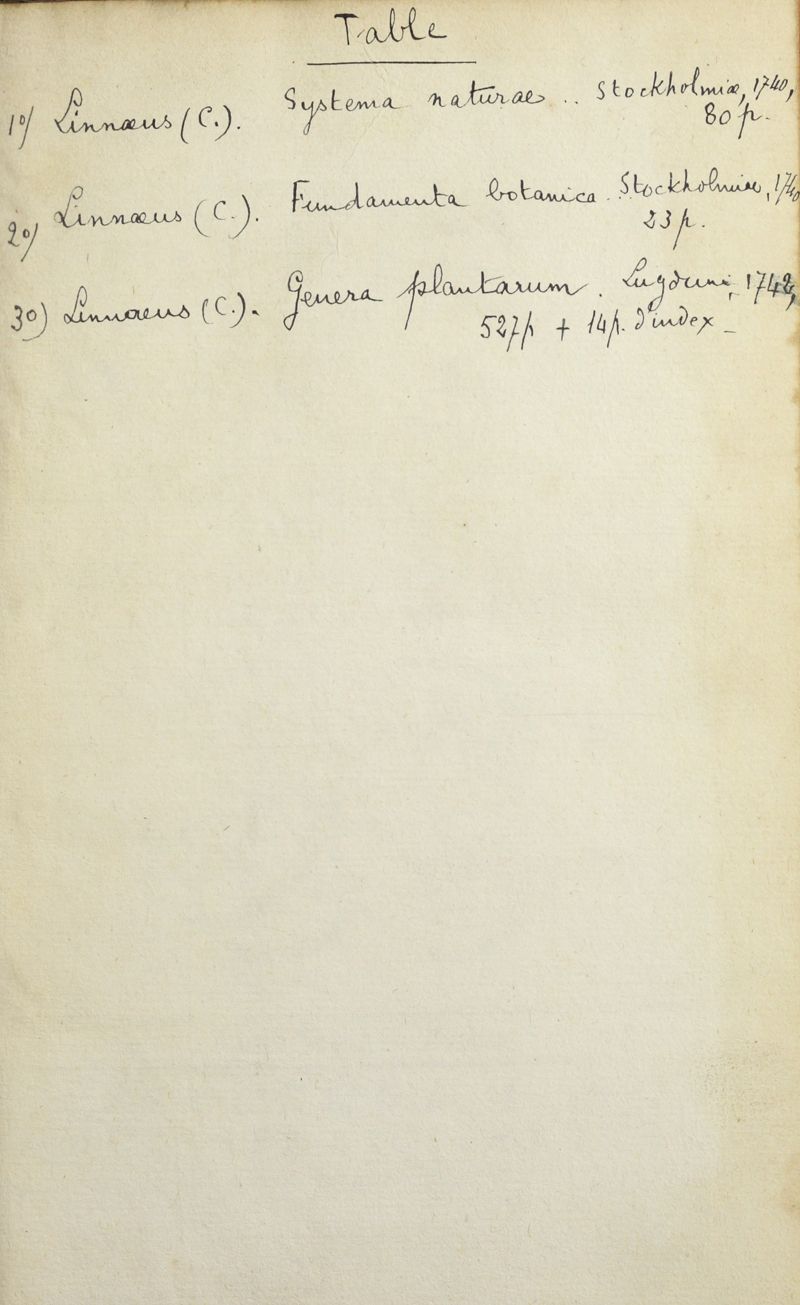 Table
1º/ Linnæus (C.). Systema naturae .. Stockholmiæ, 1740,
80 p.
2º/ Linnæus (C.). Fundamenta botanica . Stockholmiæ, 1740
23 p.
3º) Linnaeus (C.). Genera plantarum . Lugduni, 1742,
527 p + 14 p. d'index _